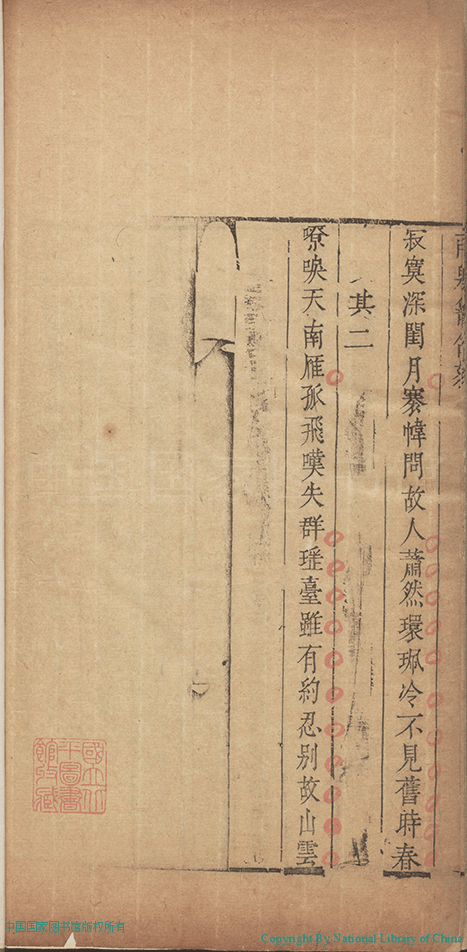 寂寞深閨月褰幃問故人蕭然環珮冷不見舊時春
其二
嘹唳天南雁孤飛嘆失群瑶臺雖有約忍别故山雲
國立北平圖書館收藏
中国国家图书馆版权所有
Copyright By National Library of China